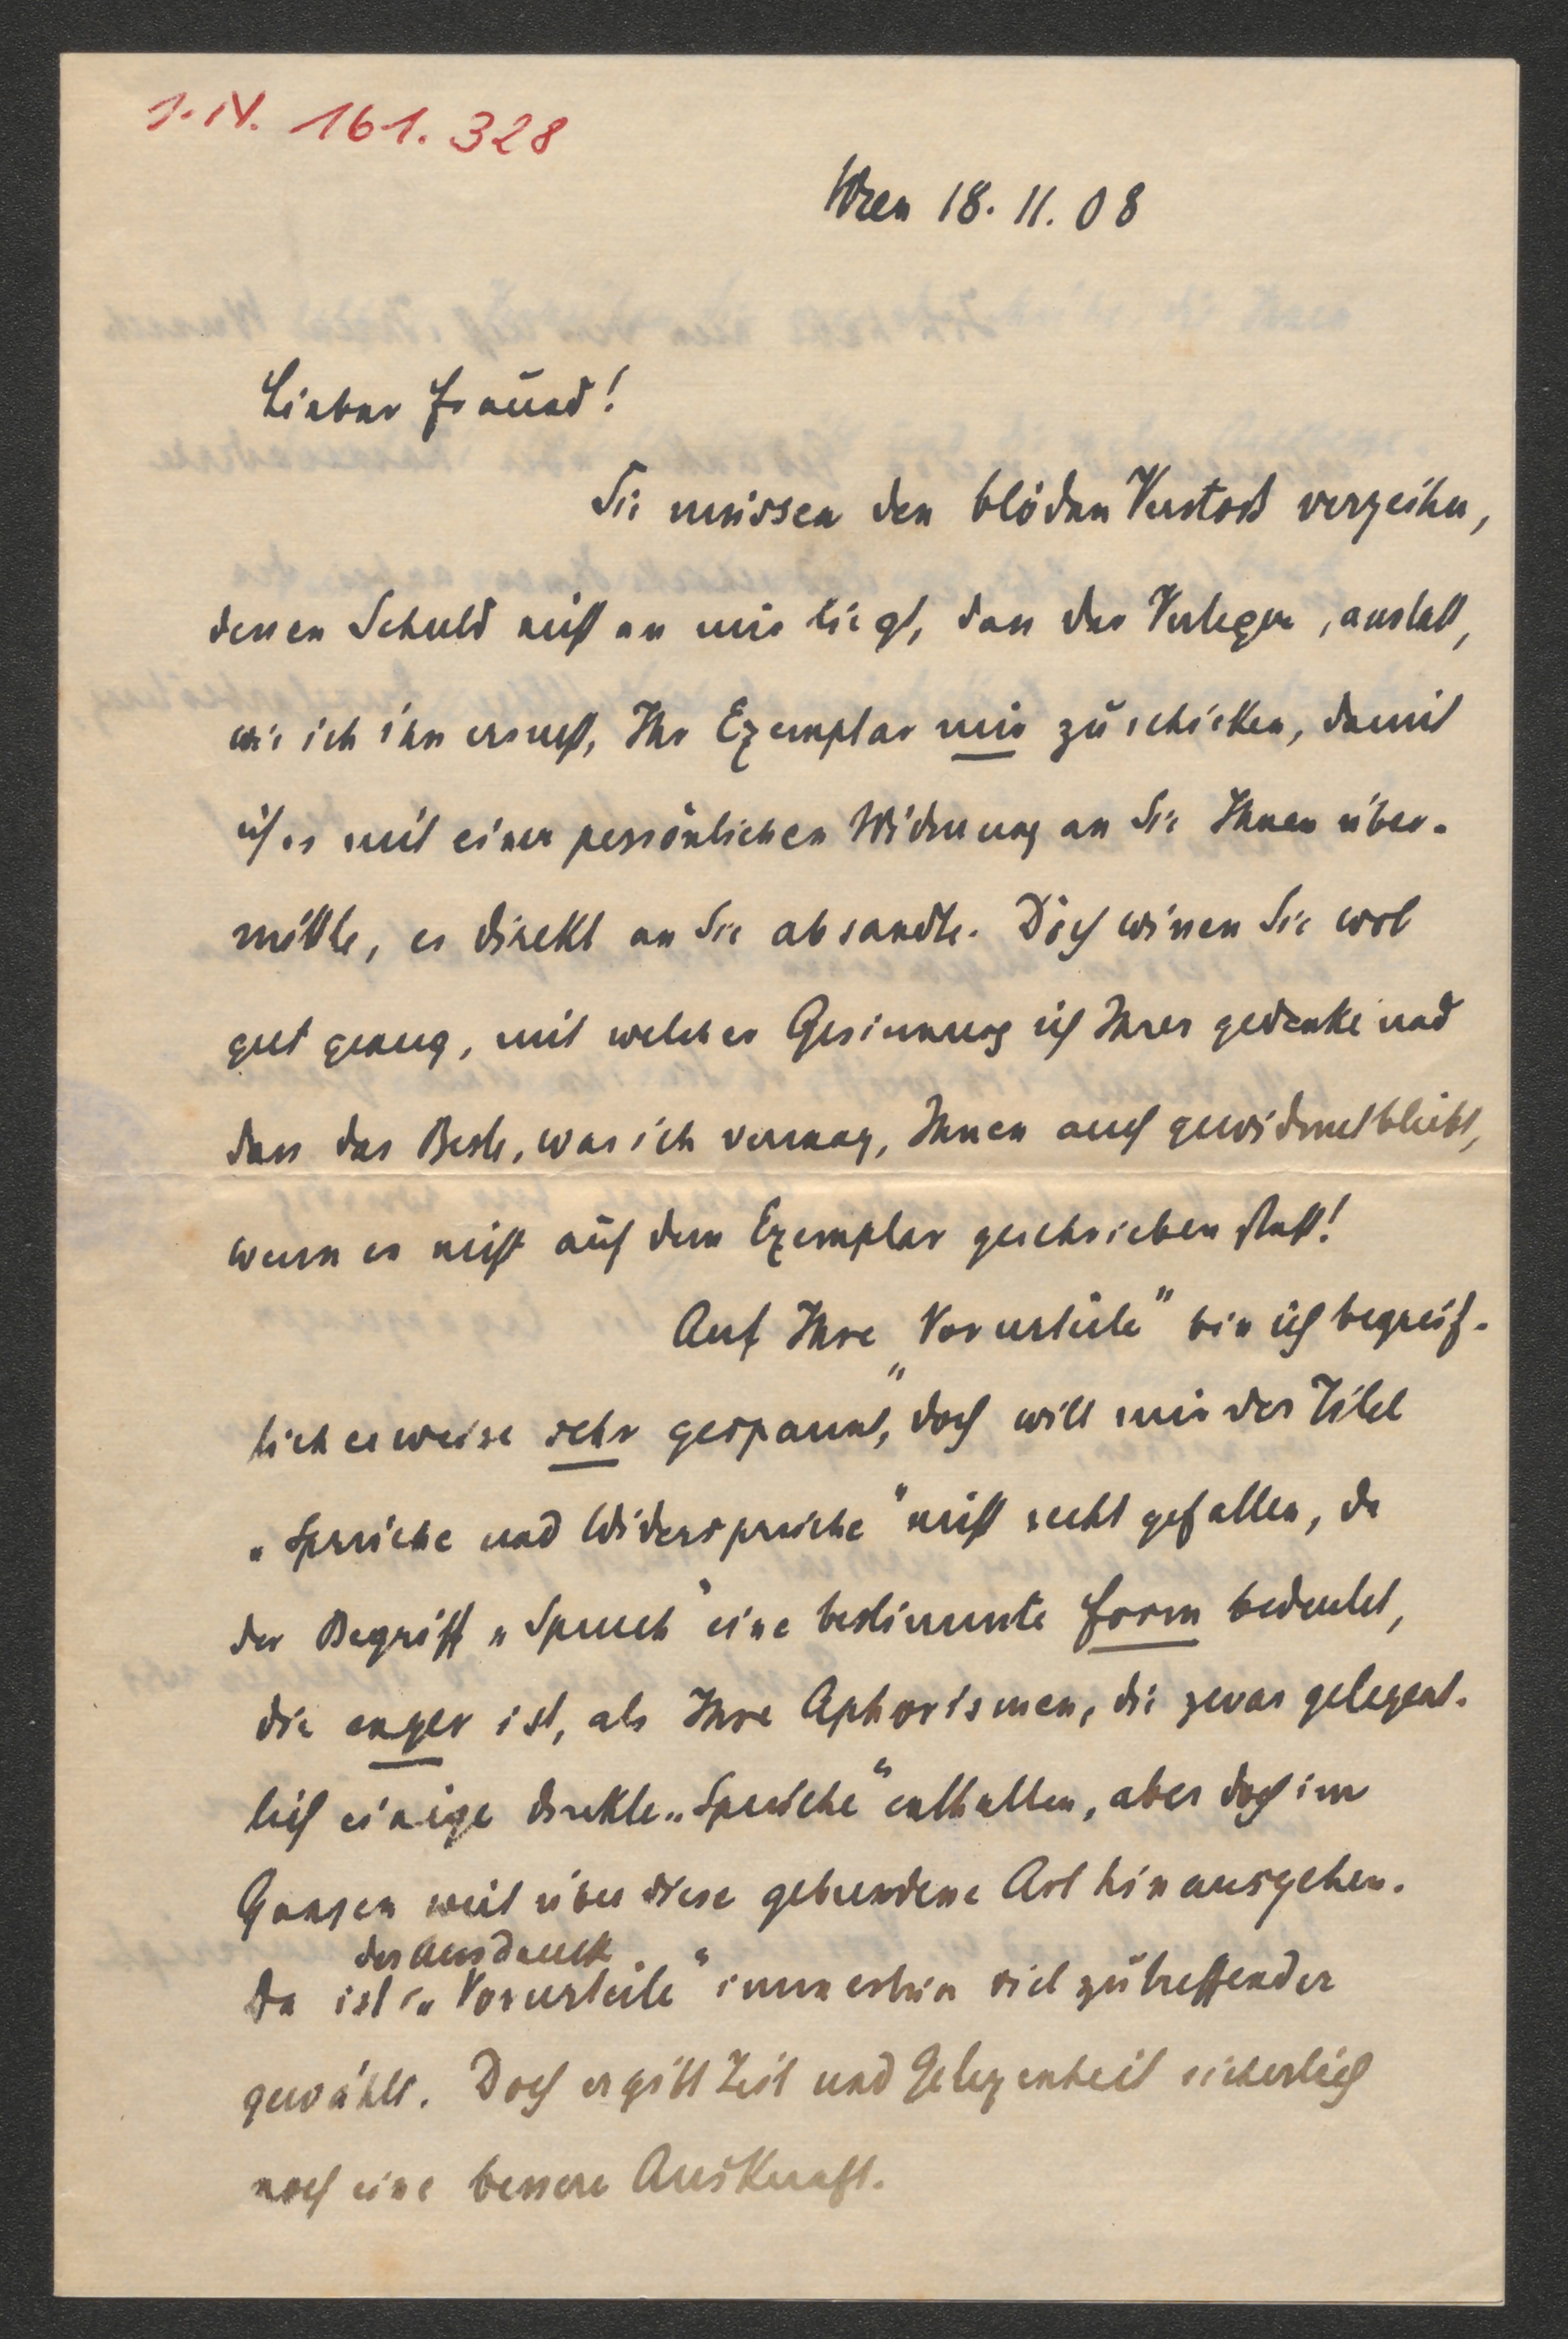 I. N. 161.328
Wien 18. 11. 08
Lieber Freund!
Sie müssen den blöden Verstoß verzeihen,
dessen Schuld nicht an mir liegt, dass der Verleger, anstatt,
wie ich ihn ersucht, Ihr Exemplar mir zu schicken, damit
ich es mit einer persönlichen Widmung an Sie Ihnen über-
mittle, es direkt an Sie absandte. Doch wissen Sie wol
gut genug, mit welcher Gesinnung ich Ihrer gedenke und
dass das Beste, was ich vermag, Ihnen auch gewidmet bleibt,
wenn es nicht auf dem Exemplar geschrieben steht!
Auf Ihre „Vorurteile" bin ich begreif-
licherweise sehr gespannt, doch will mir der Titel
„Sprüche und Widersprüche" nicht recht gefallen, da
der Begriff „Spruch" eine bestimmte Form bedeutet,
die enger ist, als Ihre Aphorismen, die zwar gelegent-
lich einige direkte „Sprüche" enthalten, aber doch im
Ganzen weit über diese gebundene Art hinausgehen.
der Ausdruck
Da ist „Vorurteile" immerhin viel zutreffender
gewählt. Doch ergibt Zeit und Gelegenheit sicherlich
noch eine bessere Auskunft.